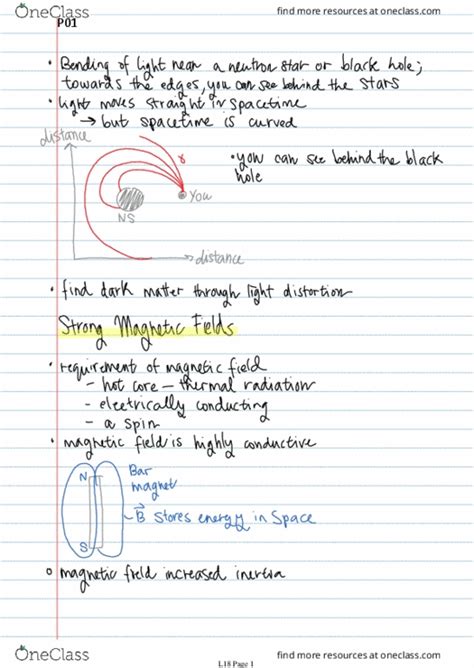 OneClass
find more resources at oneclass.com
P01
• Bending of light near a neutron star or black hole;
towards the edges, you can see behind the stars
• light moves straight in spacetime
→ but spacetime is curved
distance
• you can see behind the black
hole
γ
You
NS
distance
• find dark matter through light distortion
Strong Magnetic Fields
• requirement of magnetic field
- hot core - thermal radiation
- electrically conducting
- a spin
• magnetic field is highly conductive
N
Bar
magnet
B stores energy in space
S
o magnetic field increased inertia
L18 Page 1
OneClass
find more resources at oneclass.com